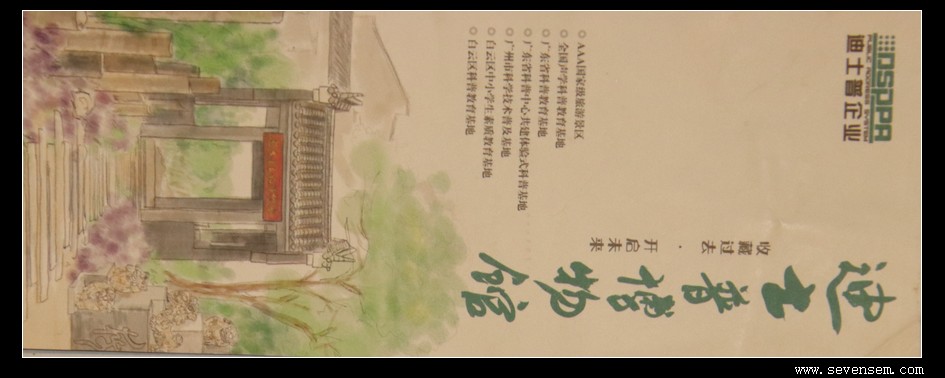 DSPPA
PUBLIC ADDRESS SYSTEM
迪士普企业
AAA国家级旅游景区
全国声学科普教育基地
广东省科普教育基地
广东省科普中心共建体验式科普基地
广州市科学技术普及基地
白云区中小学生素质教育基地
白云区科普教育基地
收藏过去·开启未来
迪士普博物馆
www.sevensem.com